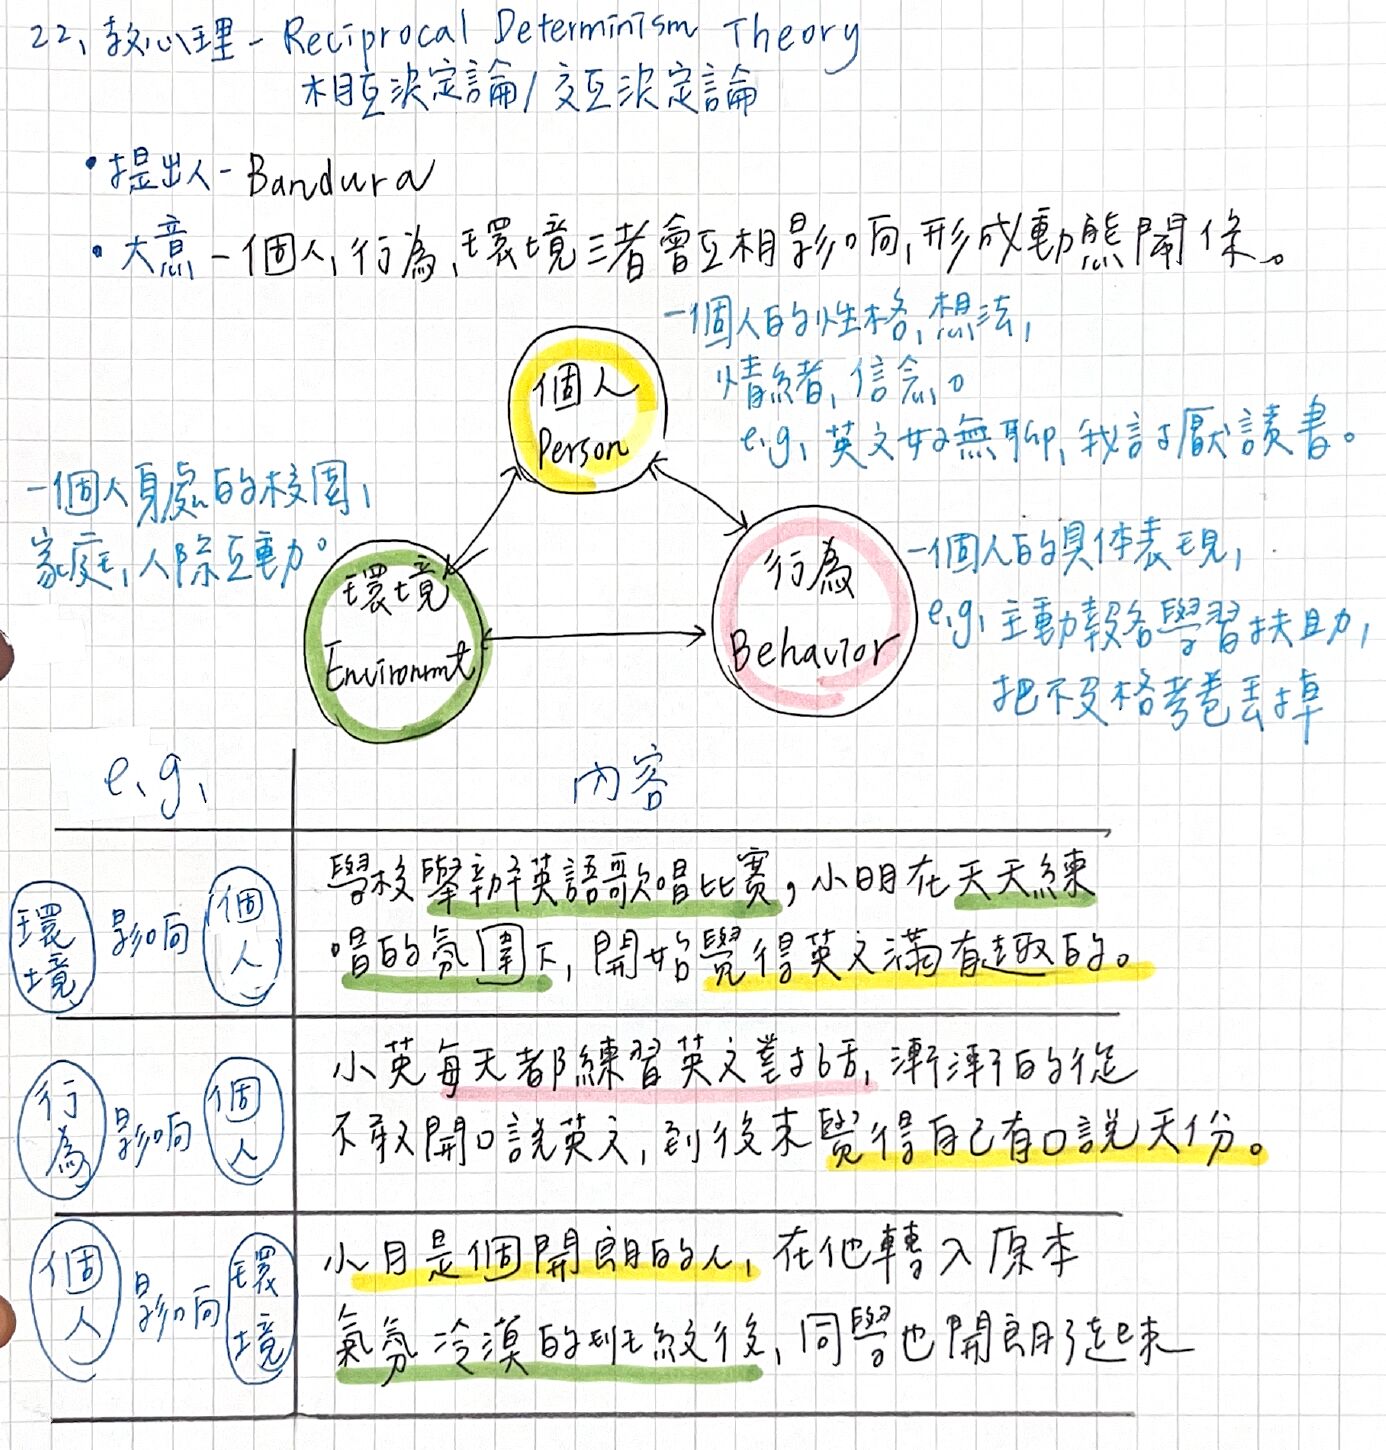 22、教心理 - Reciprocal Determinism Theory
相互決定論/交互決定論
•提出人 - Bandura
•大意 - 個人,行為,環境三者會互相影响,形成動態關係。
- 個人的性格,想法,
情緒,信念。
e.g, 英文好無聊,我討厭讀書。
個人
Person
- 個人身處的校園,
家庭,人際互動。
環境
Environmt
行為
Behavior
- 個人的具体表現,
e.g, 主動報名學習扶助,
把不及格考卷丟掉
e.g,
內容
環境 影响 個人
學校舉辦英語歌唱比賽,小明在天天練
唱的氛圍下,開始覺得英文滿有趣的。
行為 影响 個人
小英每天都練習英文對話,漸漸的從
不敢開口說英文,到後來覺得自己有口說天份。
個人 影响 環境
小月是個開朗的人,在他轉入原本
氣氛冷漠的班級後,同學也開朗了起來